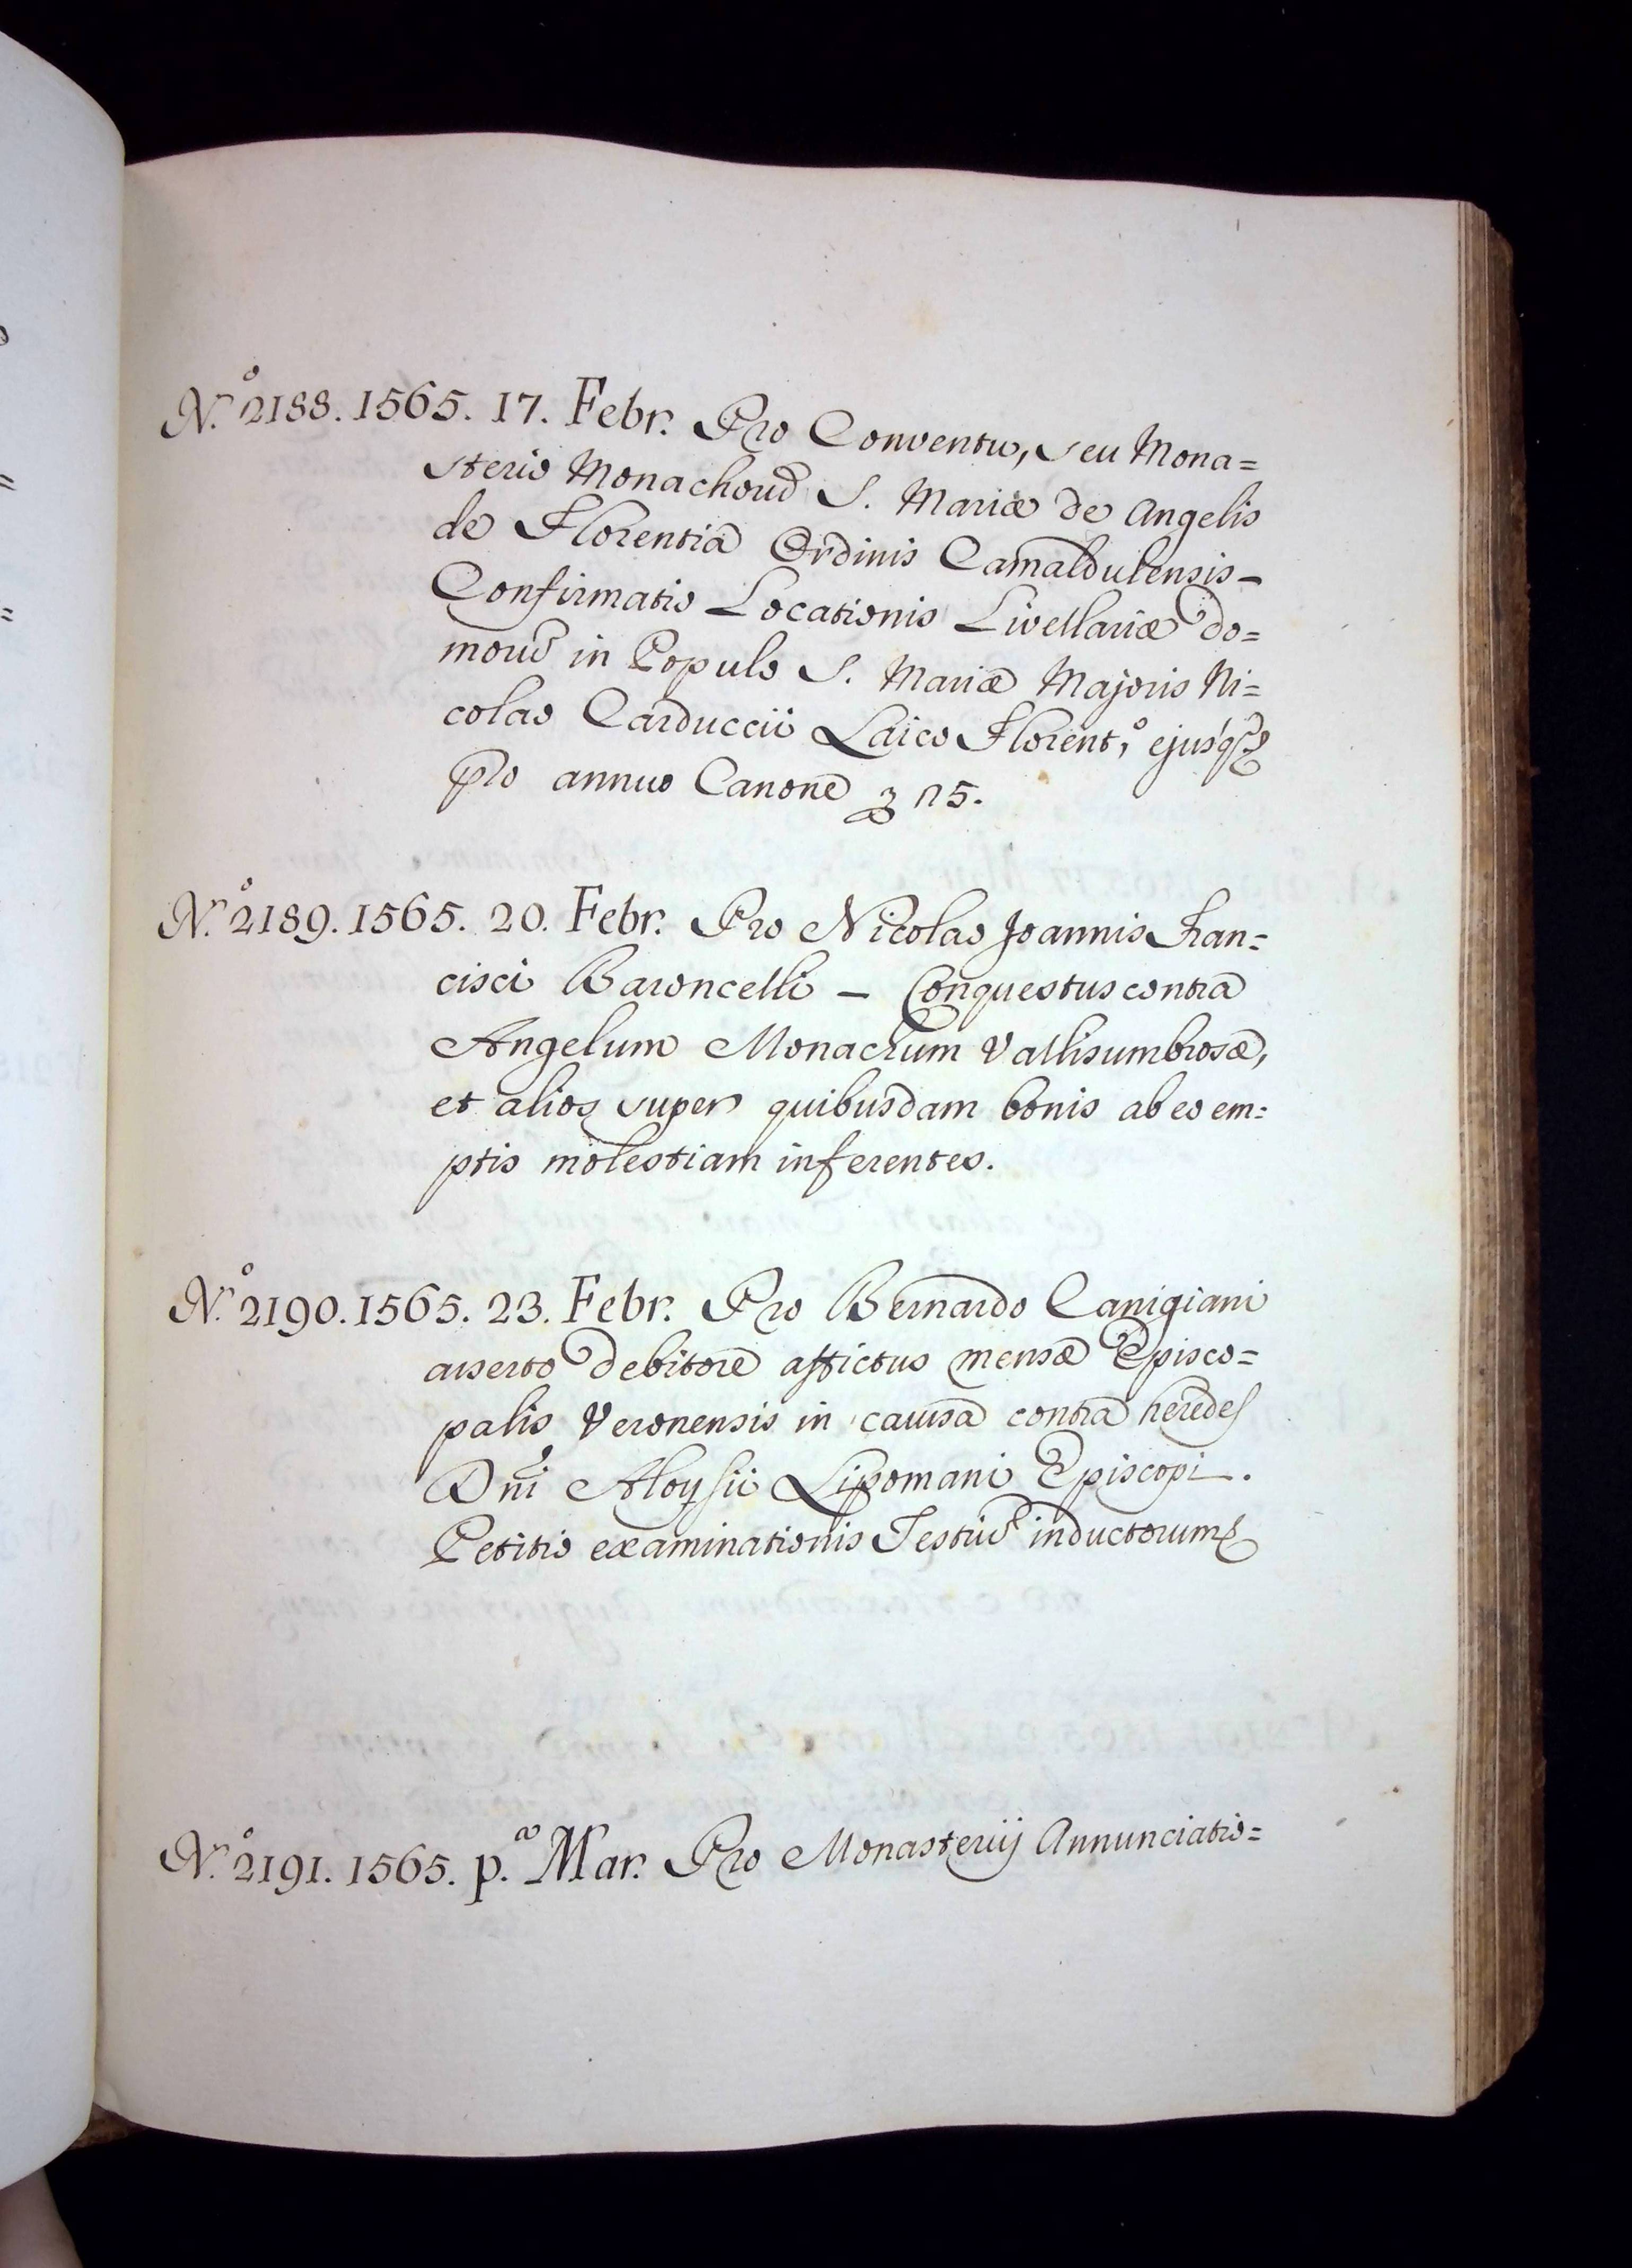 N.º 2188. 1565. 17. Febr. Pro Conventu, seu Mona=
sterio Monachoru͂ S. Mariæ de Angelis
de Florentia Ordinis Camaldulensis –
Confirmatio Locationis Livellariæ do=
moru͂ in Populo S. Mariæ Majoris Ni=
colao Carduccii Laico Florent.º ejusq͂
pro annuo Canone 5.
N.º 2189. 1565. 20. Febr. Pro Nicolao Joannis Fran=
cisci Baroncelli – Conquestus contra
Angelum Monacum Vallisumbrosæ,
et alios super quibusdam bonis ab eo em=
ptis molestiam inferentes.
N.º 2190. 1565. 23. Febr. Pro Bernardo Canigiani
asserto debitore affictus mensæ Episco=
palis Veronensis in causa contra heredes
Dn͂i Aloysii Lipomani Episcopi.
Petitio examinationis Testiu͂ inductorum
N.º 2191. 1565. p.ª Mar. Pro Monasterij Annunciatio=